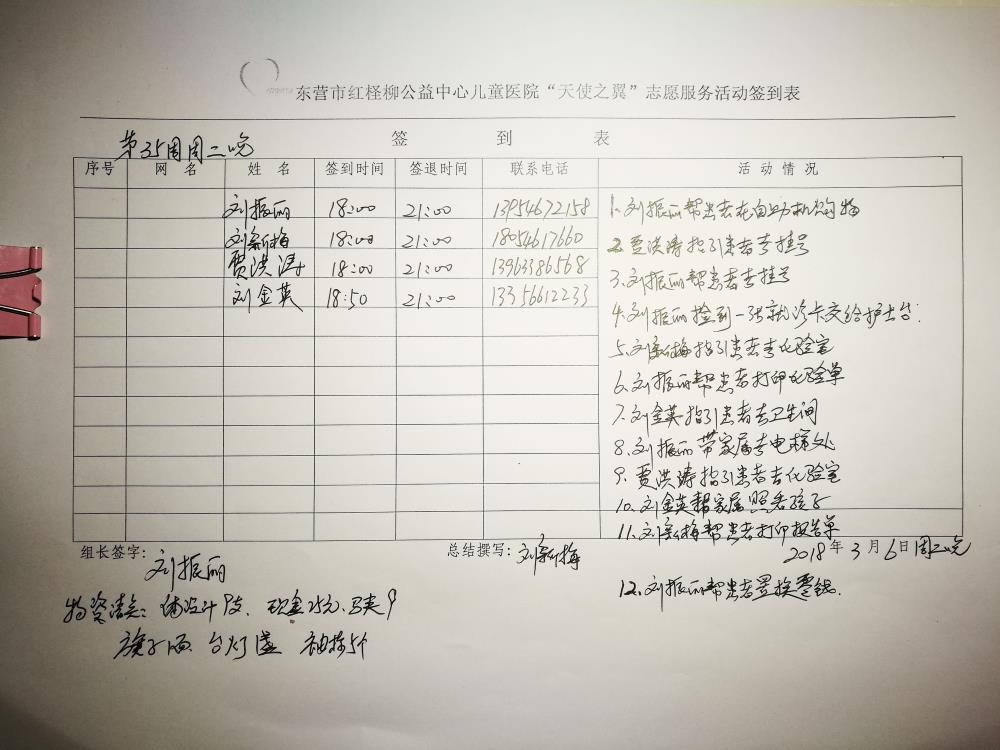 东营市红柽柳公益中心儿童医院“天使之翼”志愿服务活动签到表
签 到 表
第35周周二晚
序号 网 名 姓 名 签到时间 签退时间 联系电话 活 动 情 况
刘振丽 18:00 21:00 13954672158
刘新梅 18:00 21:00 18054617660
贾洪涛 18:00 21:00 13963386568
刘金英 18:50 21:00 13356612233
1.刘振丽帮患者在自助机购物
2.贾洪涛指引患者去挂号
3.刘振丽帮患者去挂号
4.刘振丽捡到一张就诊卡交给护士台.
5.刘新梅指引患者去化验室
6.刘振丽帮患者打印化验单
7.刘金英指引患者去卫生间
8.刘振丽带家属去电梯处
9.贾洪涛指引患者去化验室
10.刘金英帮家属照看孩子
11.刘新梅帮患者打印报告单
组长签字：刘振丽 总结撰写：刘新梅 2018年3月6日周二晚
12.刘振丽帮患者置换零钱.
物资清点： 9支、现金25元、马夹9
旗子 台灯 袖标5个